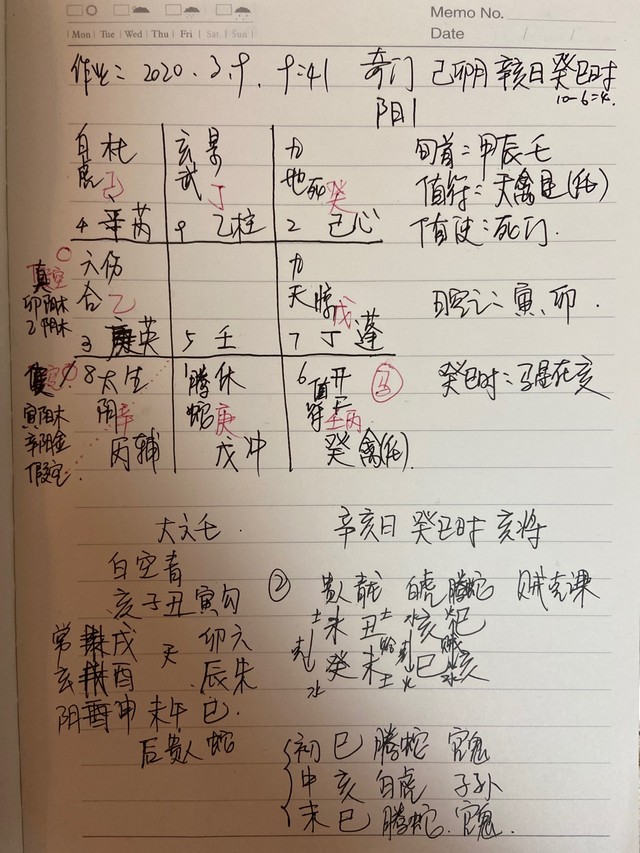 Memo No.
Mon Tue Wed Thu Fri Sat Sun
Date / /
作业: 2020.3.9. 9:41 奇门 己卯月 辛亥日 癸巳时
阳1
10-6=4.
白虎 杜 己
4 辛芮
玄武 景 丁
9 乙柱
九地 死 癸
2 己心
旬首:甲辰壬
值符:天禽星(
值使:死门.
真空
卯阴木
乙阴木
六合 伤 乙
3 庚英
5 壬
九天 戊
7 丁蓬
日空亡:寅、卯.
寅阳木
辛阴金
假空
8 太阴 生 辛
丙辅
1 腾蛇 休 庚
戊冲
6 值符 开 壬丙
癸禽
马
癸巳时:马星在亥
大六壬.
辛亥日 癸巳时 亥将
白空青
亥子丑寅勾
②
贵人 青龙 白虎 腾蛇 贼克课
土未 丑土 水亥 巳
常戌 天 卯六
克 水癸 未土 克 火巳 贼 水亥
玄酉 辰朱
阴申 未午 巳.
后贵人蛇
初 巳 腾蛇 官鬼
中 亥 白虎 子孙
末 巳 腾蛇. 官鬼.